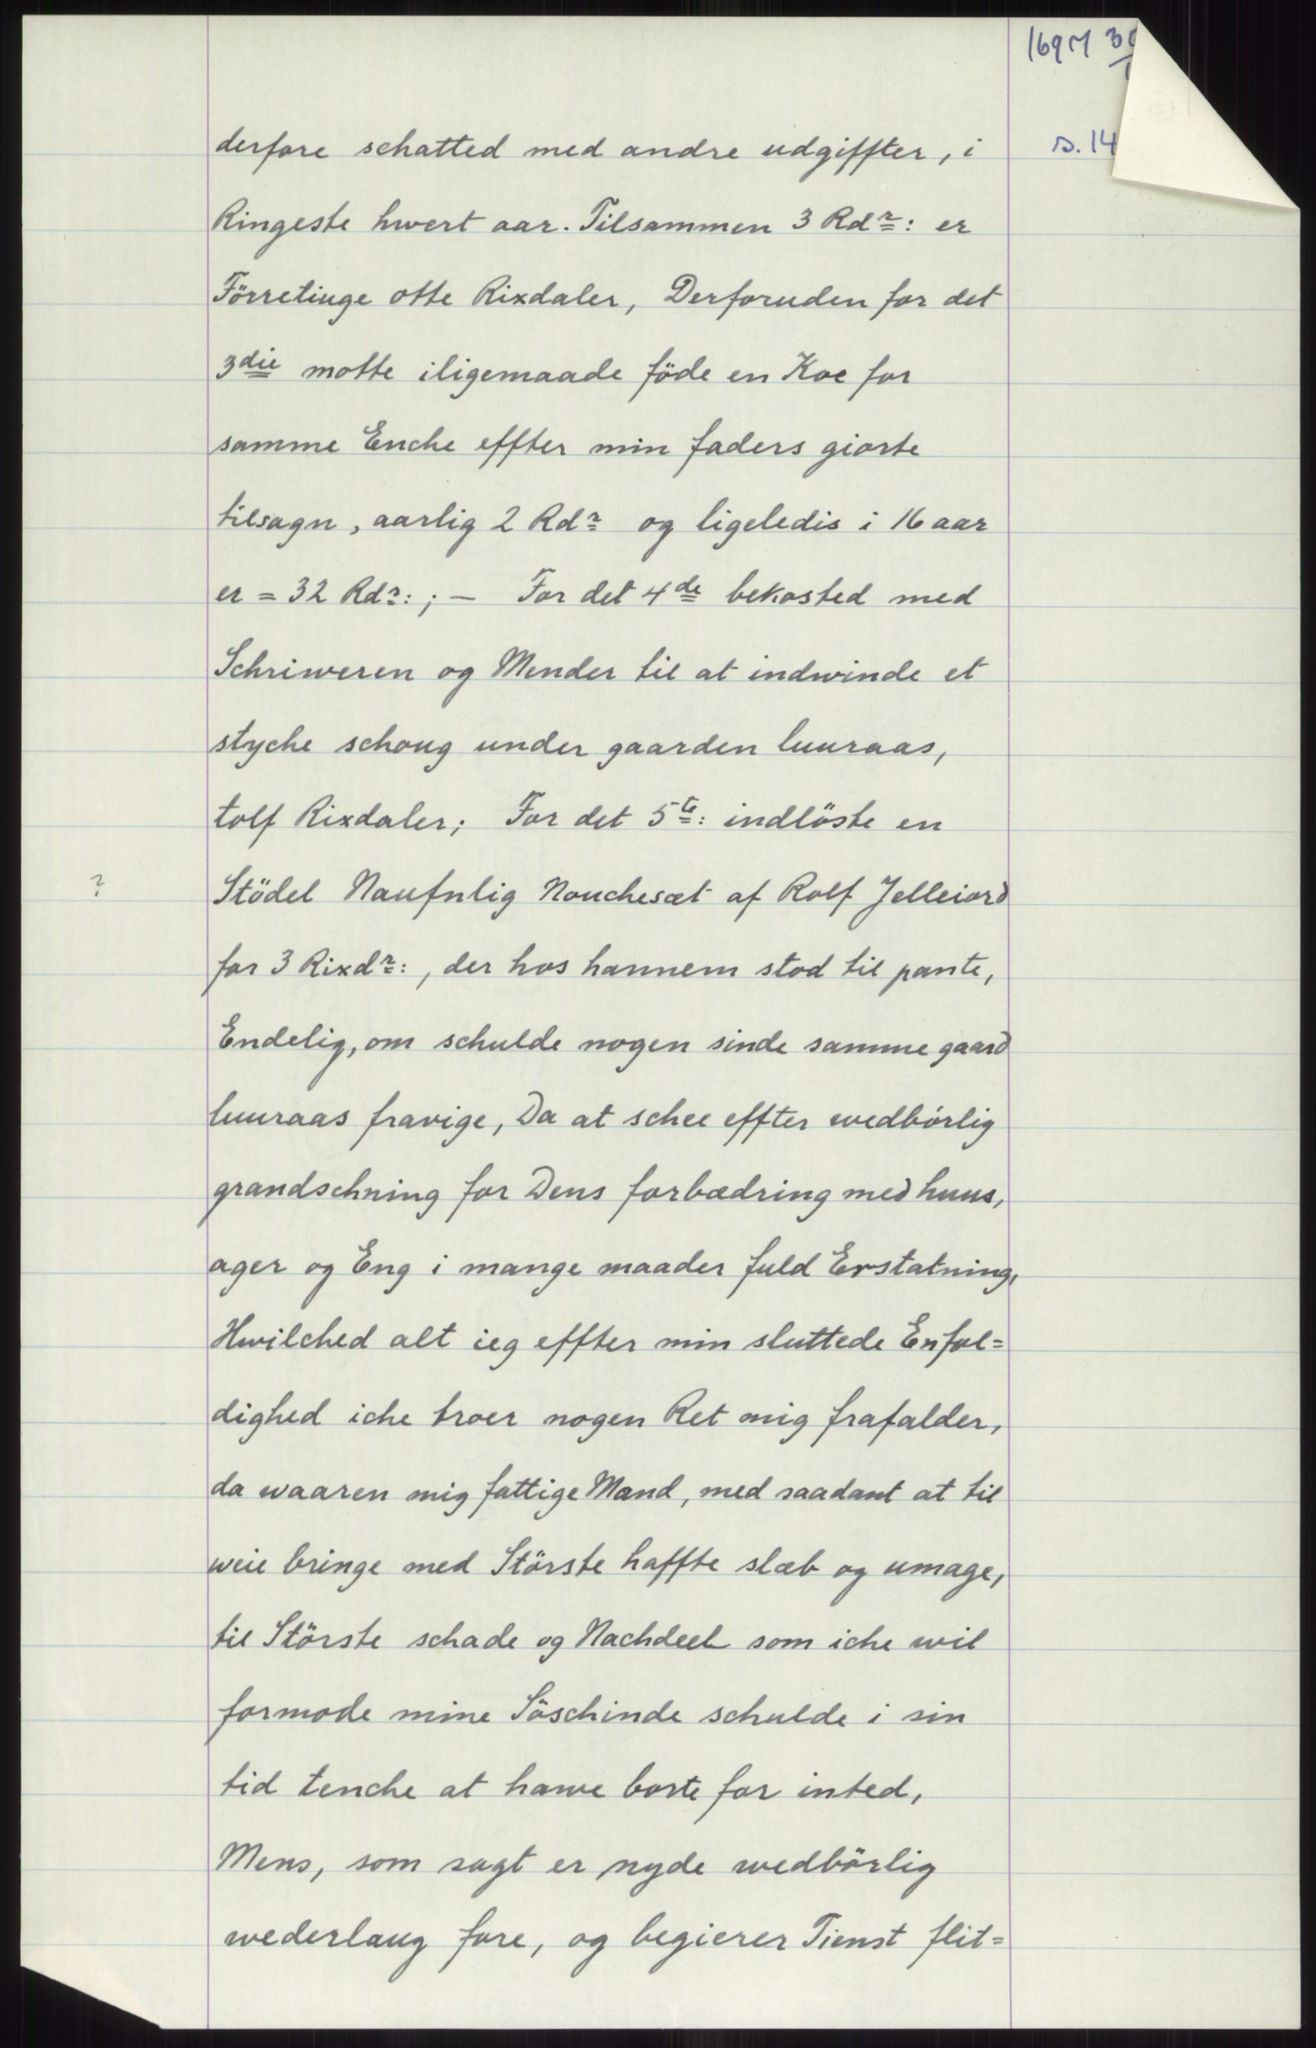 1697
s. 14
derfore schatted med andre udgiffter, i
Ringeste hwert aar. Tilsammen 3 Rdr: er
Förretiuge otte Rixdaler, Derforuden for det
3die motte iligemaade föde en Koe for
samme Enche effter min faders giorte
tilsagn, aarlig 2 Rdr og ligeledis i 16 aar
er = 32 Rdr: ; — For det 4de bekosted med
Schriweren og Mender til at indwinde et
styche schoug under gaarden luuraas,
tolf Rixdaler; For det 5te: indlöste en
? Stödel Naufnlig Nouchesæt af Rolf Jelleiord
for 3 Rixdr: , der hos hannem stod til pante,
Endelig, om schulde nogen sinde samme gaard
luuraas fravige, Da at schee effter wedbörlig
grandschning for Dens forbædring med huus,
ager og Eng i mange maader fuld Erstatning,
Hwilched alt ieg effter min sluttede Enfol=
dighed iche troer nogen Ret mig frafalder,
da waaren mig fattige Mand, med saadant at til
weie bringe med Störste haffte slæb og umage,
til Störste schade og Nachdeel som iche wil
formode mine Söschinde schulde i sin
tid tenche at hawe borte for inted,
Mens, som sagt er nyde wedbörlig
wederlaug fore, og begierer Tienst flit=